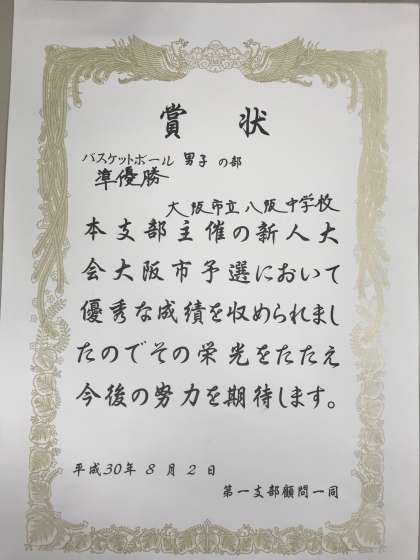 賞状
バスケットボール 男子 の部
準優勝
大阪市立八阪中学校
本支部主催の新人大
会大阪市予選において
優秀な成績を収められまし
たのでその栄光をたたえ
今後の努力を期待します。
平成30年 8月 2日
第一支部顧問一同